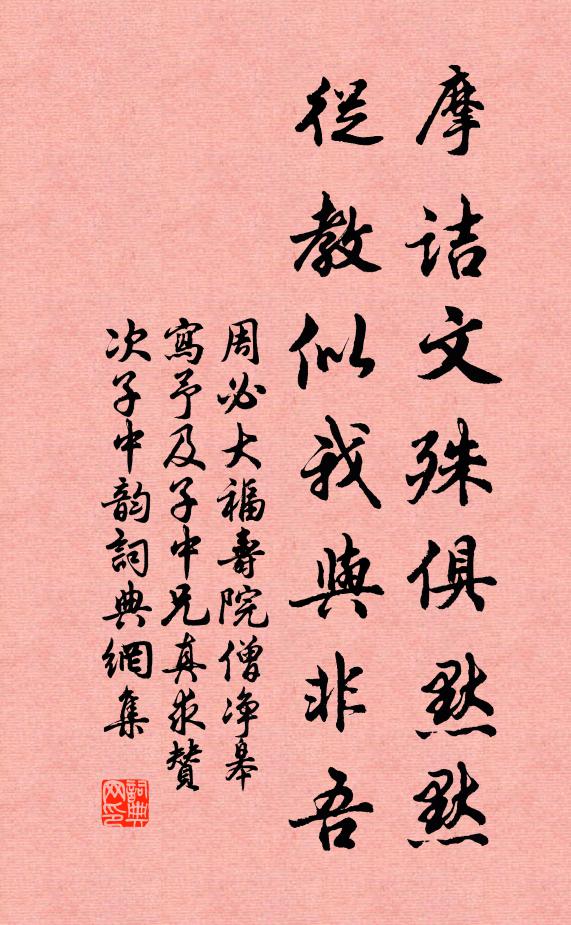 摩詰文殊俱默默
從教似我與非吾
周必大福壽院僧净皋
寫予及子中兄真求贊
次子中韵詞典網集
詞典网印